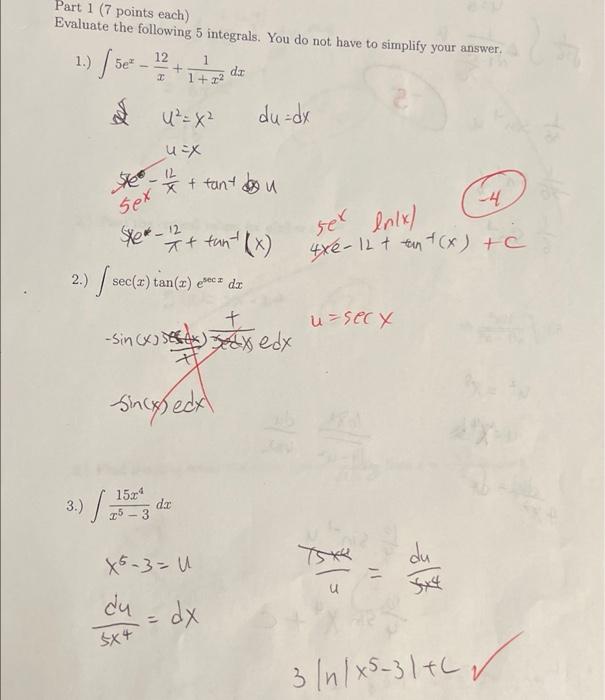 Part 1 (7 points each)
Evaluate the following 5 integrals. You do not have to simplify your answer.
1.) ∫ 5e^x − 12/x + 1/(1 + x²) dx
u² = x² du = dx
u = x
− 12/x + tan⁻¹ u
5e^x
-4
− 12/x + tan⁻¹(x)
5e^x ln|x|
4xe − 12 + tan⁻¹(x) + C
2.) ∫ sec(x) tan(x) e^(sec x) dx
u = sec x
-sin(x) edx
-sin(x) edx
3.) ∫ 15x⁴/(x⁵ − 3) dx
x⁵-3 = u
15x⁴/u = du/5x⁴
du/5x⁴ = dx
3 ln|x⁵-3| + C ✓